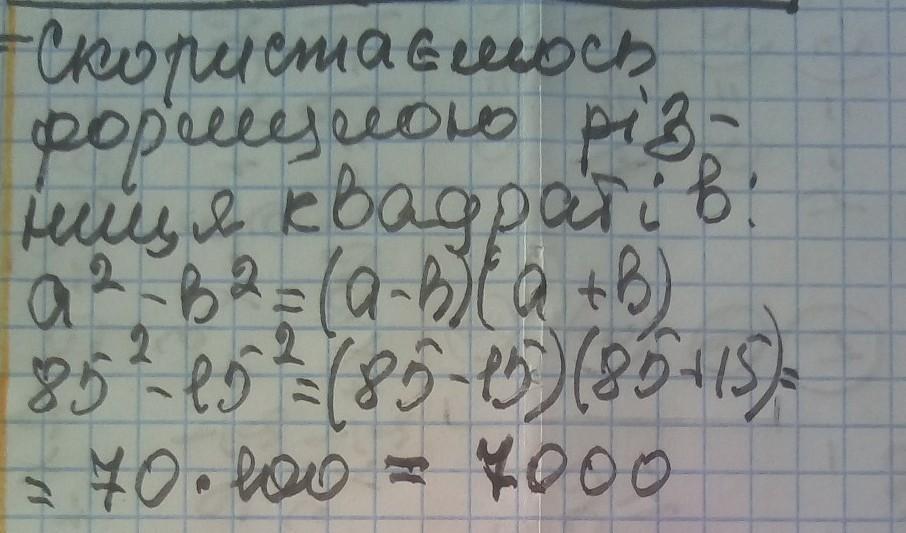 Скористаємось
формулою різ-
ниця квадратів:
a² - b² = (a - b)(a + b)
85² - 15² = (85 - 15)(85 + 15) =
= 70 · 100 = 7000